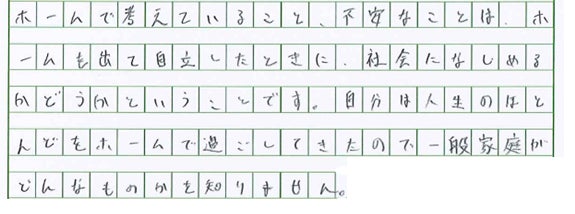 ホームで考えていること、不安なことは、ホ
ームを出て自立したときに、社会になじめる
かどうかということです。自分は人生のほと
んどをホームで過ごしてきたので一般家庭が
どんなものかを知りません。